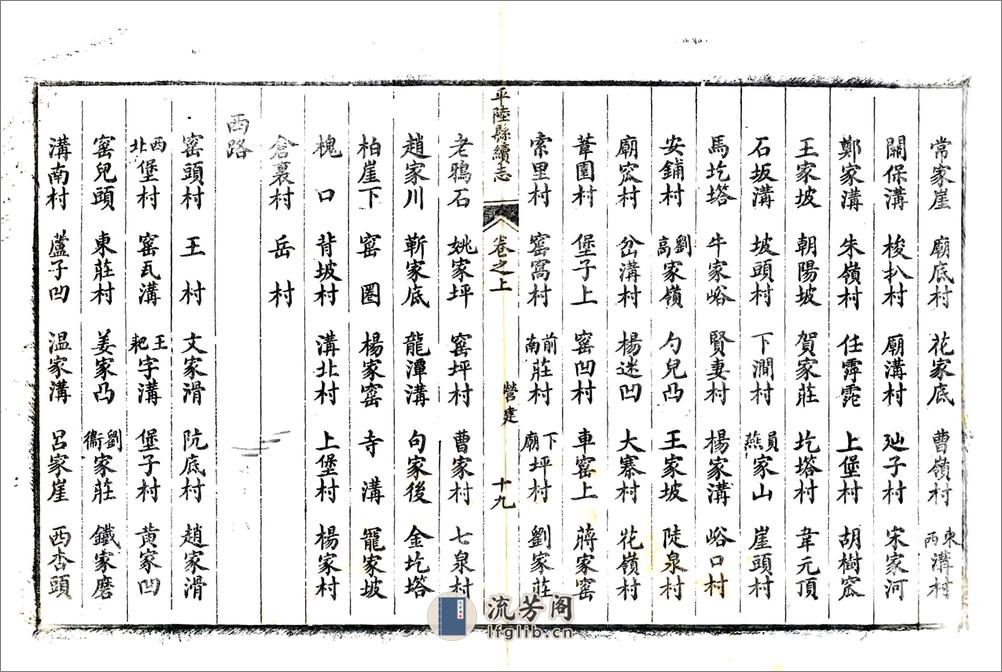 常家崖 廟底村 花家底 曹嶺村 東西溝村
關保溝 梭扒村 廟溝村 廵子村 宋家河
鄭家溝 朱嶺村 任霽雹 上堡村 胡樹窊
王家坡 朝陽坡 賀家莊 圪塔村 韋元頂
石坂溝 坡頭村 下澗村 員燕家山 崖頭村
馬圪塔 牛家峪 賢妻村 楊家溝 峪口村
安鋪村 劉高家嶺 勺兒凸 王家坡 陡泉村
廟窊村 岔溝村 楊迷凹 大寨村 花嶺村
葦園村 堡子上 窰凹村 車窰上 蔣家窰
索里村 窰窩村 前南莊村 下廟坪村 劉家莊
平陸縣續志 卷之上 營建 十九
老鴉石 姚家坪 窰坪村 曹家村 七泉村
趙家川 靳家底 龍潭溝 句家後 金圪塔
柏崖下 窰圈 楊家窰 寺溝 寵家坡
槐口 背坡村 溝北村 上堡村 楊家村
倉裏村 岳村
西路
窰頭村 王村 文家滑 阬底村 趙家滑
西北堡村 窰瓦溝 王耙字溝 堡子村 黃家凹
窰兒頭 東莊村 姜家凸 劉衞家莊 鐵家磨
溝南村 蘆子凹 溫家溝 呂家崖 西杏頭
流芳阁
lfglib.cn